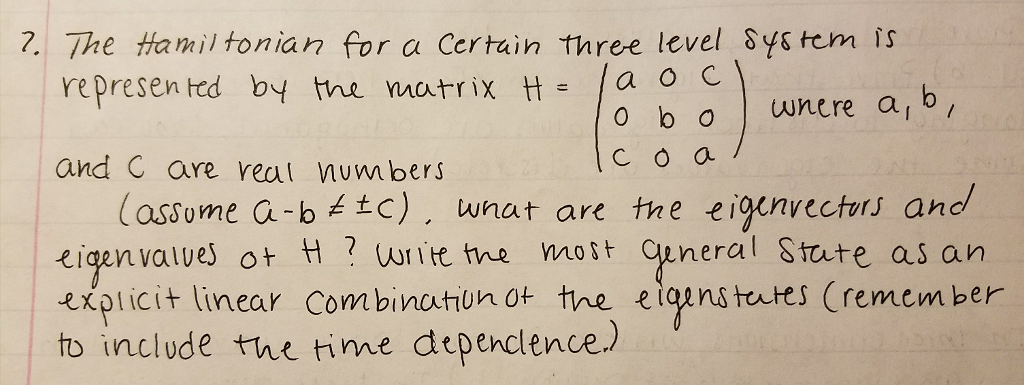 7. The Hamiltonian for a certain three level system is
represented by the matrix H = ( a 0 c
0 b 0
c 0 a ) where a, b,
and c are real numbers
(assume a-b ≠ ±c). What are the eigenvectors and
eigenvalues of H? Write the most general state as an
explicit linear combination of the eigenstates (remember
to include the time dependence.)